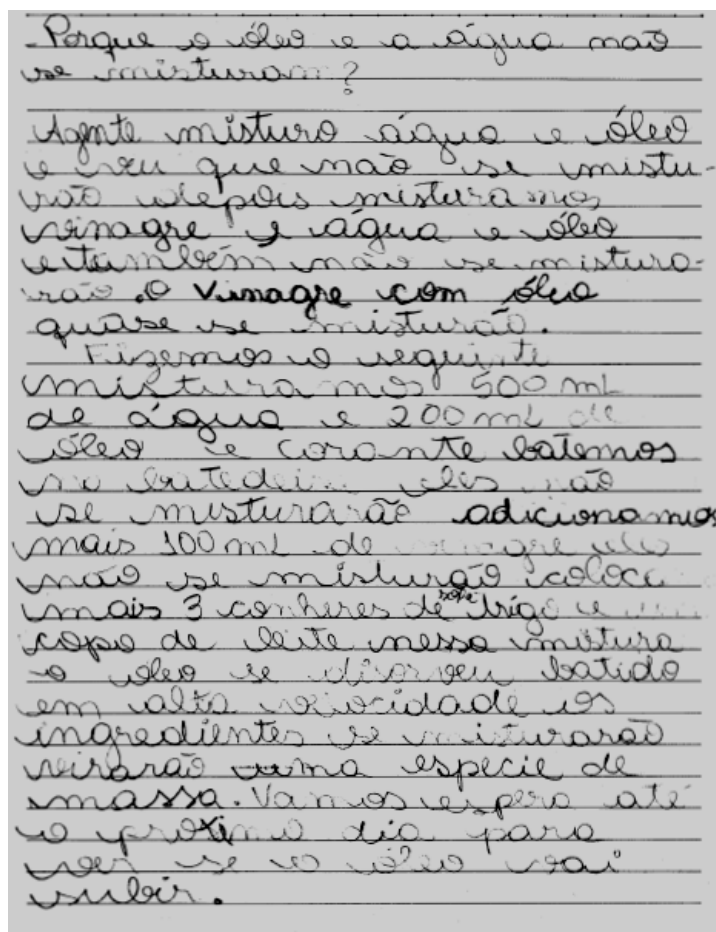 - Porque o óleo e a água não
se misturam?
Agente misturo água e óleo
e veu que não se mistu-
rão depois misturamos
vinagre e água e óleo
e também não se mistura-
rão. O Vinagre com óleo
quase se misturão.
Fizemos o seguinte
misturamos 500 mL
de água e 200 mL de
óleo e corante batemos
na batedeira eles não
se misturarão adicionamos
mais 100 mL de vinagre
não se misturão coloca
mais 3 conheres de trigo e
copo de leite nessa mistura
o óleo se disorveu batido
em alta velocidade os
ingredientes se misturarão
virarão uma espécie de
massa. Vamos espera até
o proximo dia para
ver se o óleo vai
subir.